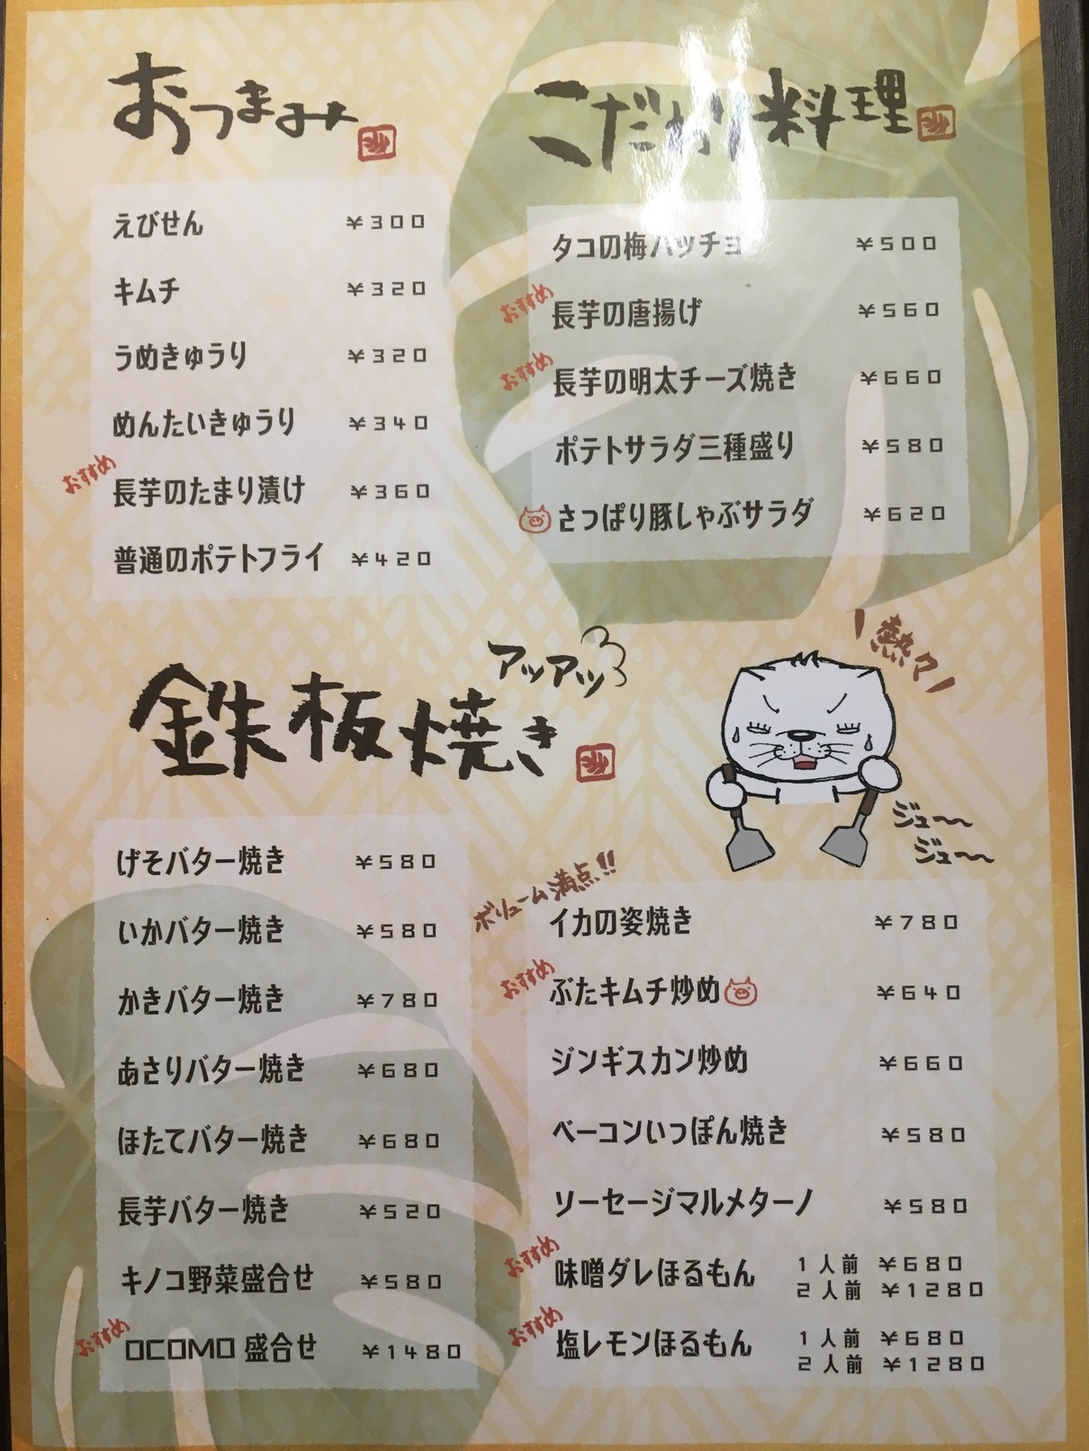 おつまみ
えびせん ¥300
キムチ ¥320
うめきゅうり ¥320
めんたいきゅうり ¥340
おすすめ
長芋のたまり漬け ¥360
普通のポテトフライ ¥420
こだわり料理
タコの梅パッチョ ¥500
おすすめ
長芋の唐揚げ ¥560
おすすめ
長芋の明太チーズ焼き ¥660
ポテトサラダ三種盛り ¥580
さっぱり豚しゃぶサラダ ¥620
アツアツ
鉄板焼き
熱々
ジュ〜〜
ジュ〜〜
げそバター焼き ¥580
いかバター焼き ¥580
かきバター焼き ¥780
あさりバター焼き ¥680
ほたてバター焼き ¥680
長芋バター焼き ¥520
キノコ野菜盛合せ ¥580
おすすめ
OCOMO 盛合せ ¥1480
ボリューム満点!!
イカの姿焼き ¥780
おすすめ
ぶたキムチ炒め ¥640
ジンギスカン炒め ¥660
ベーコンいっぽん焼き ¥580
ソーセージマルメターノ ¥580
おすすめ
味噌ダレほるもん 1人前 ¥680
2人前 ¥1280
おすすめ
塩レモンほるもん 1人前 ¥680
2人前 ¥1280